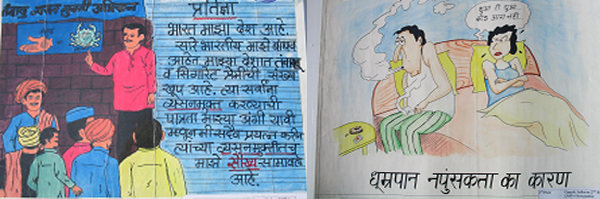 अभियान
प्रतिज्ञा
भारत माझा देश आहे.
सारे भारतीय माझे बांधव
आहेत माझ्या देशात तंबाखू
व सिगारेट प्रेमींची संख्या
खूप आहे. त्या सर्वांना
व्यसनमुक्त करण्याची
पात्रता माझ्या अंगी यावी
म्हणून मी सदैव प्रयत्न करीन
त्यांच्या व्यसनमुक्तीतच
माझे सौख्य सामावले
आहे.
धूम्रपान नपुंसकता का कारण